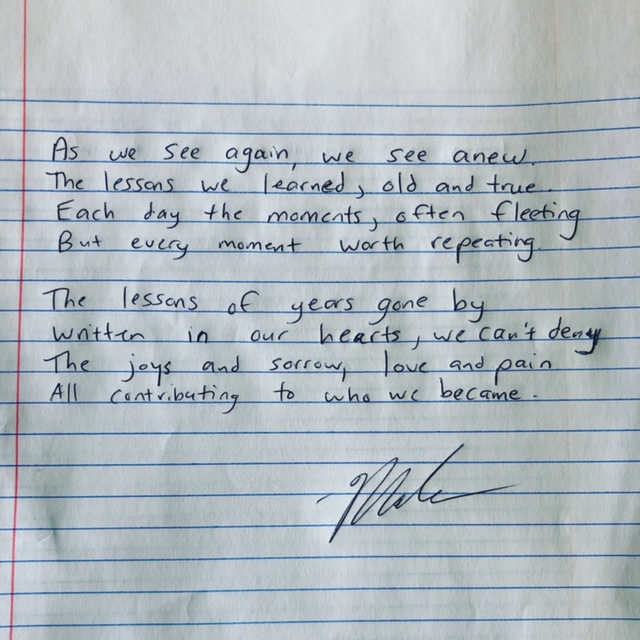 As we see again, we see anew.
The lessons we learned, old and true.
Each day the moments, often fleeting
But every moment worth repeating.
The lessons of years gone by
written in our hearts, we can't deny
The joys and sorrow, love and pain
All contributing to who we became.